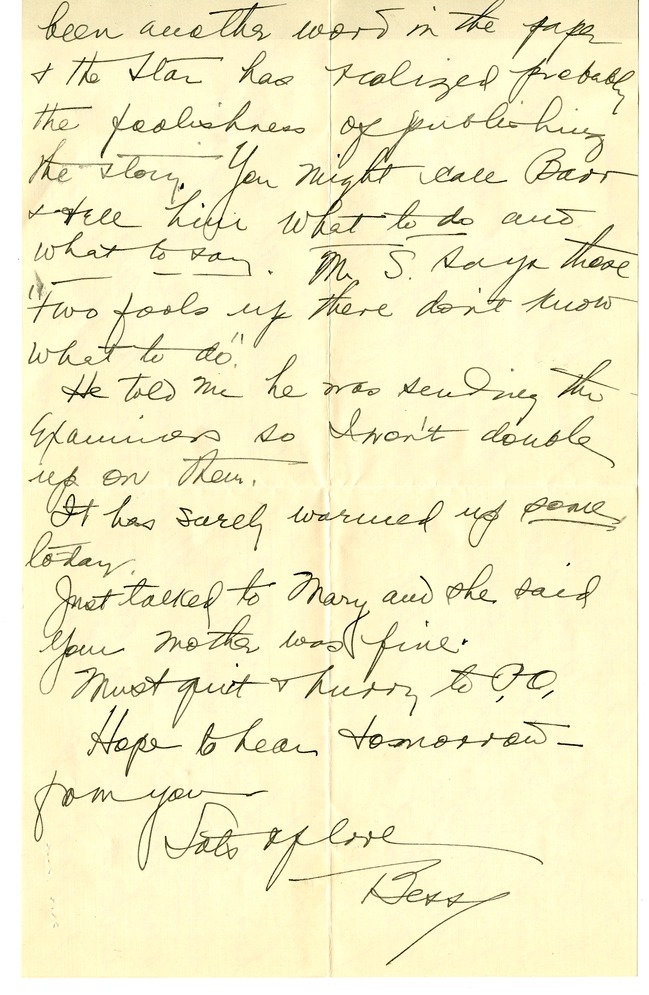 been another word in the paper
& the Star has realized probably
the foolishness of publishing
the story. You might call Barr
& tell him what to do and
what to say. Mr. S. says those
"two fools up there don't know
what to do".
He told me he was sending the
Examiners so I won't double
up on them.
It has surely warmed up some,
today.
Just talked to Mary and she said
your mother was fine.
Must quit & hurry to P.O.
Hope to hear tomorrow—
from you—
Lots of love
Bess